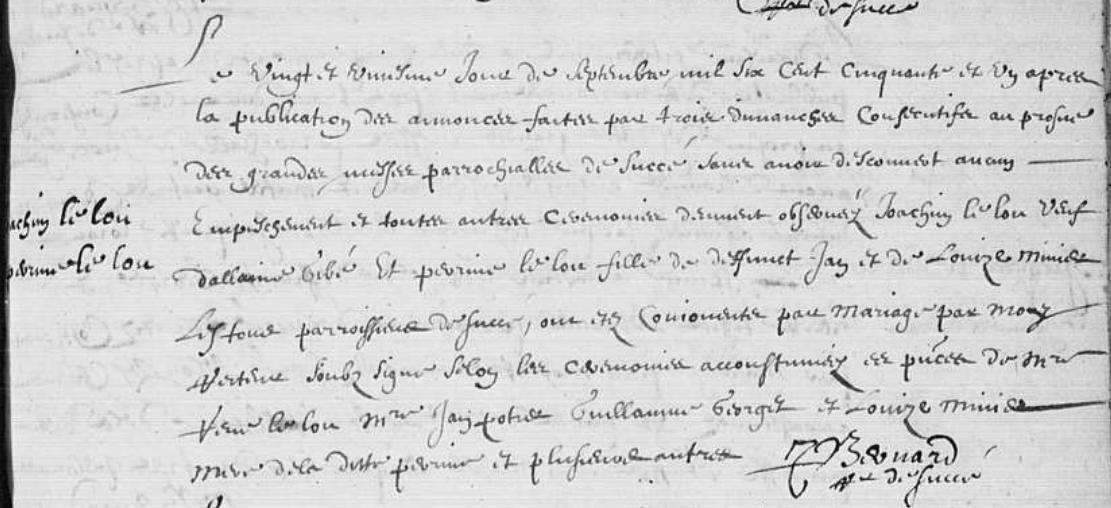 de succé
Le vingt et uniesme Jour de septembre mil six cent cinquante et un apres
la publication des annonces faites par trois dimanches consecutifs au prosne
des grandes messes parrochialles de succé sans avoir descouvert aucun
Joachim le lou
Empeschement et toutes autres ceremonies deument observéz Joachim le lou veuf
perrine le lou
dallaine et perrine le lou fille de deffunct Jan et de Louize minier
Les tous parroissiens de succé, ont etez conjoincts par mariage par moy
Recteur soubz signé selon les ceremonies accoustuméz es pnces de mre
rene le lou mre Jan potier Guillaume Georget et Louize minier
mere de la ditte perrine et plusieurs autres
Beruard
de succé